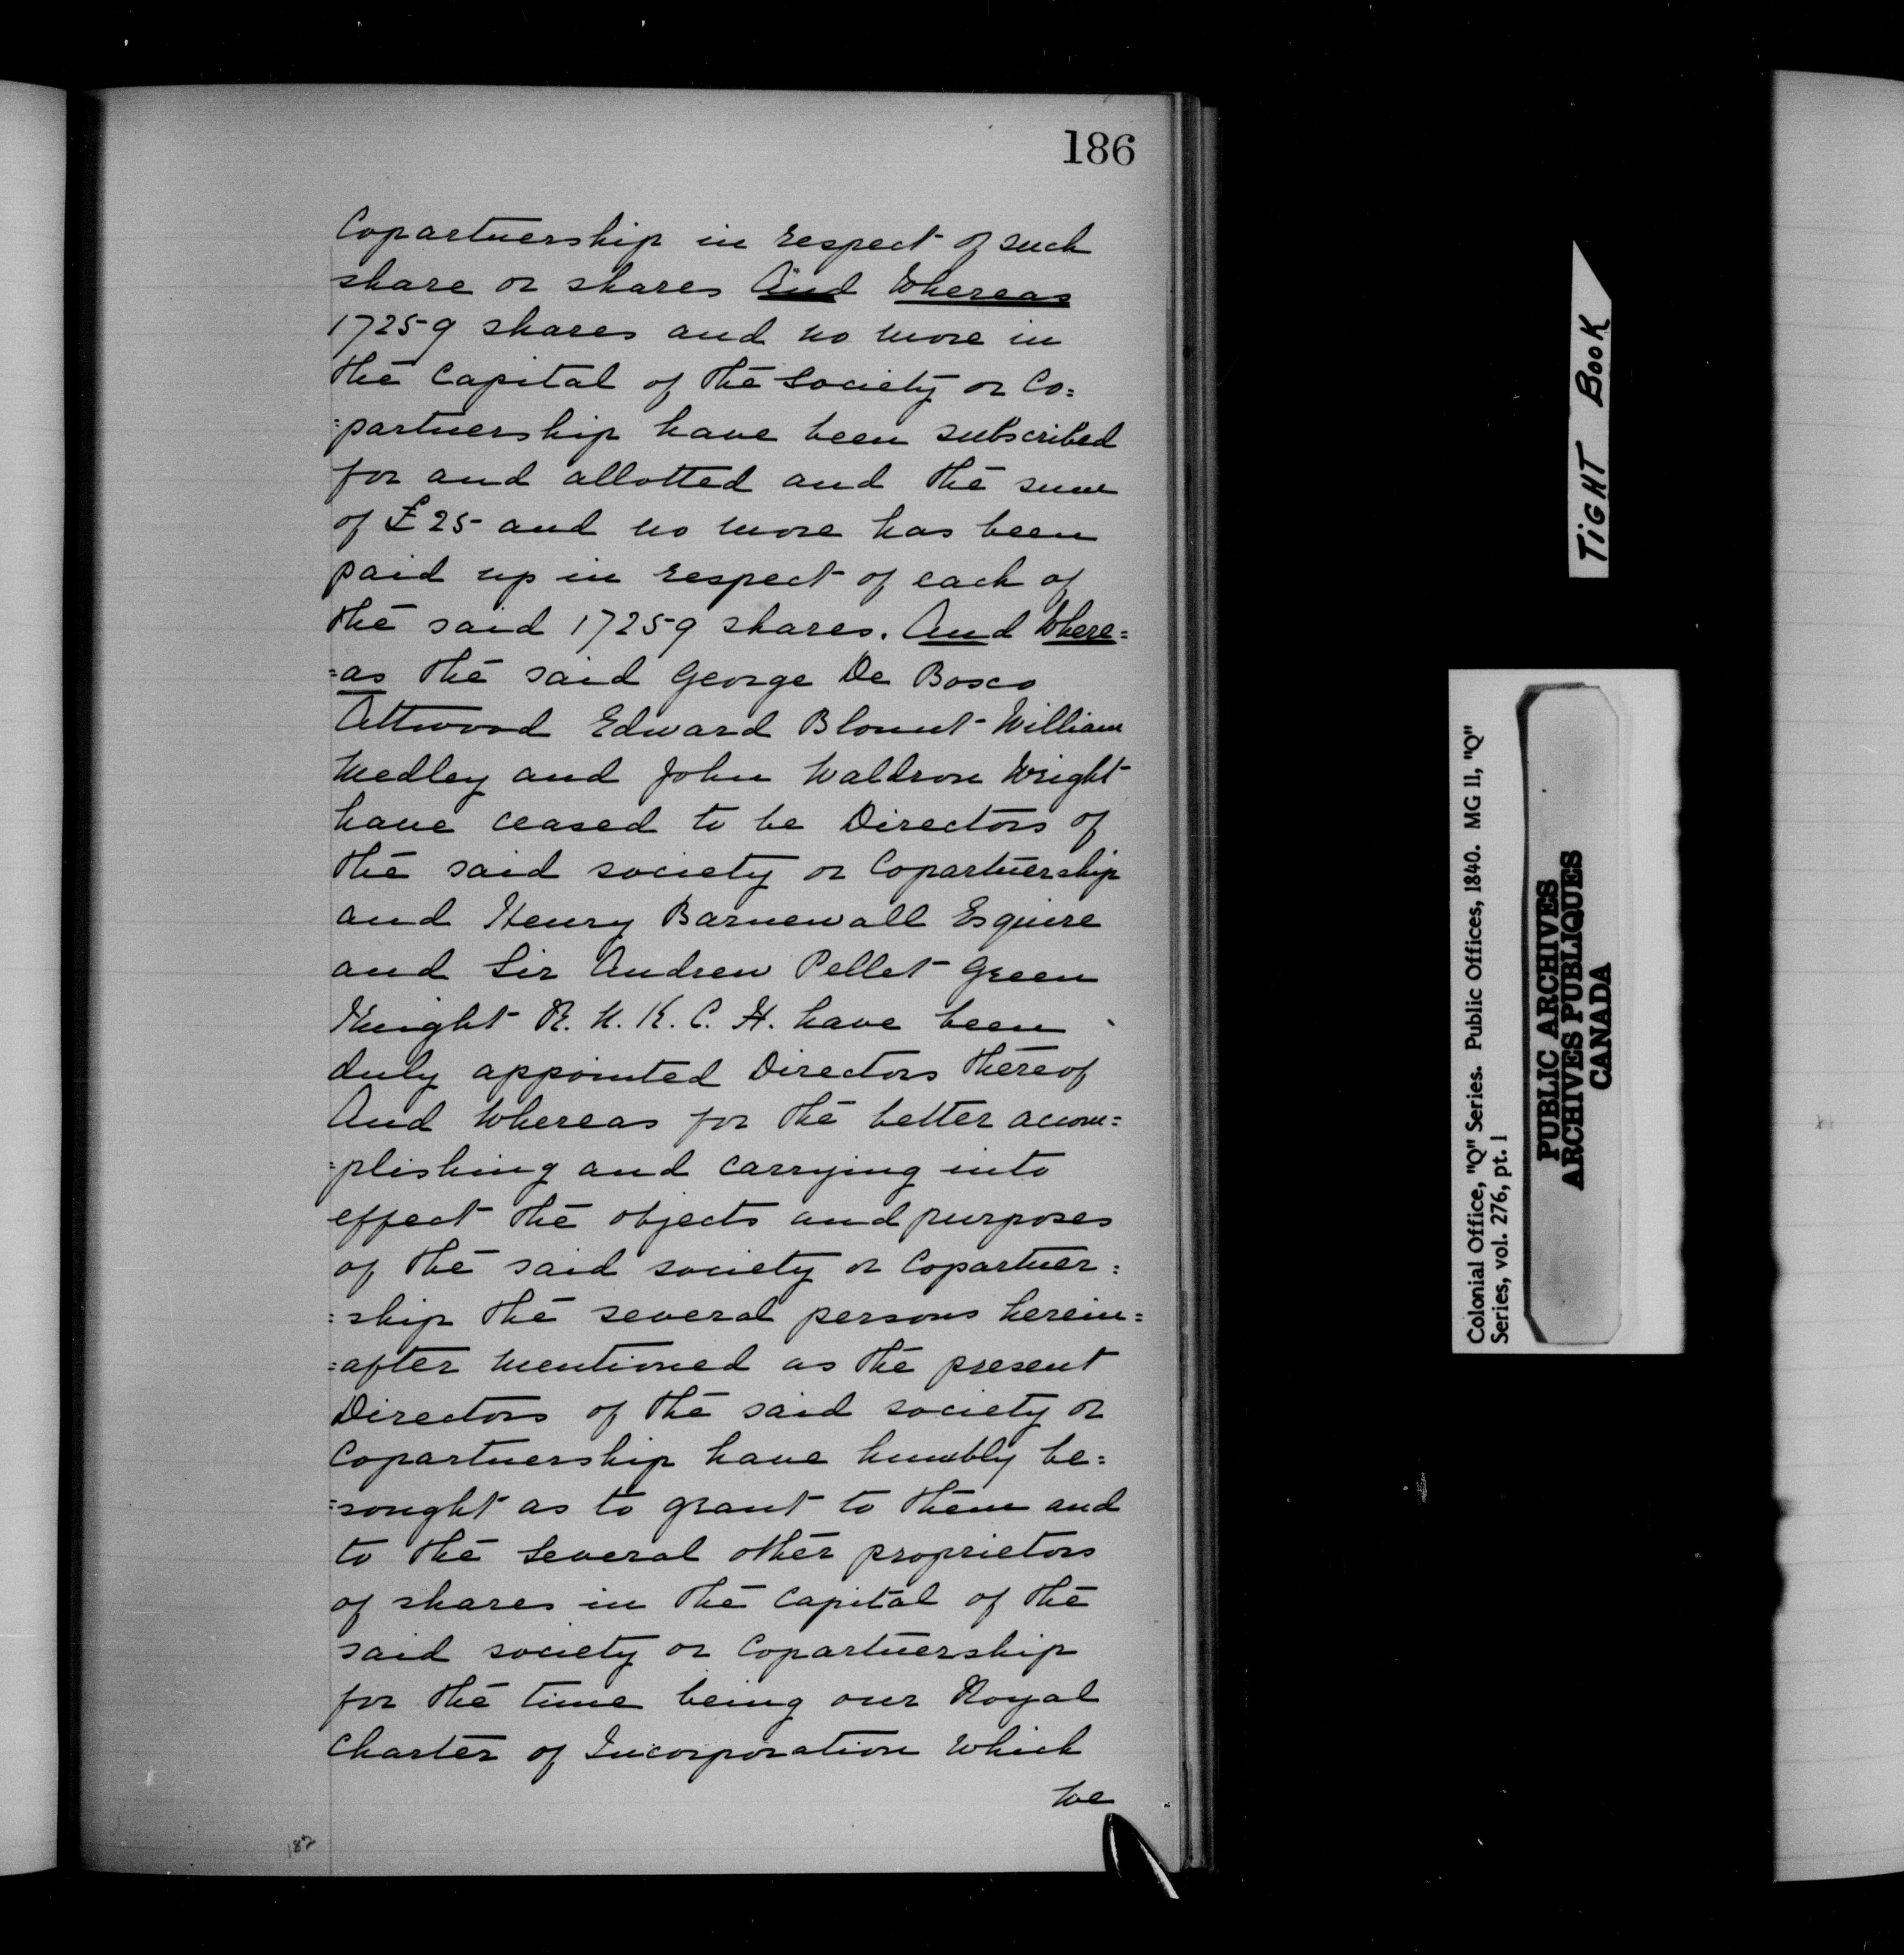 186
Copartnership in respect of such
share or shares And Whereas
17259 shares and no more in
the Capital of the Society or Co=
=partnership have been subscribed
for and allotted and the sum
of £25 and no more has been
paid up in respect of each of
the said 17259 shares. And Where=
=as the said George De Bosco
Attwood Edward Blount William
Medley and John Waldron Wright
have ceased to be Directors of
the said society or Copartnership
and Henry Barnewall Esquire
and Sir Andrew Pellet Green
Knight R. N. K. C. H. have been
duly appointed Directors thereof
And Whereas for the better accom=
=plishing and carrying into
effect the objects and purposes
of the said society or Copartner=
=ship the several persons herein=
=after mentioned as the present
Directors of the said society or
Copartnership have humbly be=
=sought as to grant to them and
to the several other proprietors
of shares in the Capital of the
said society or Copartnership
for the time being our Royal
Charter of Incorporation which
we
187
TIGHT BOOK
Colonial Office, "Q" Series. Public Offices, 1840. MG 11, "Q"
Series, vol. 276, pt. 1
PUBLIC ARCHIVES
ARCHIVES PUBLIQUES
CANADA